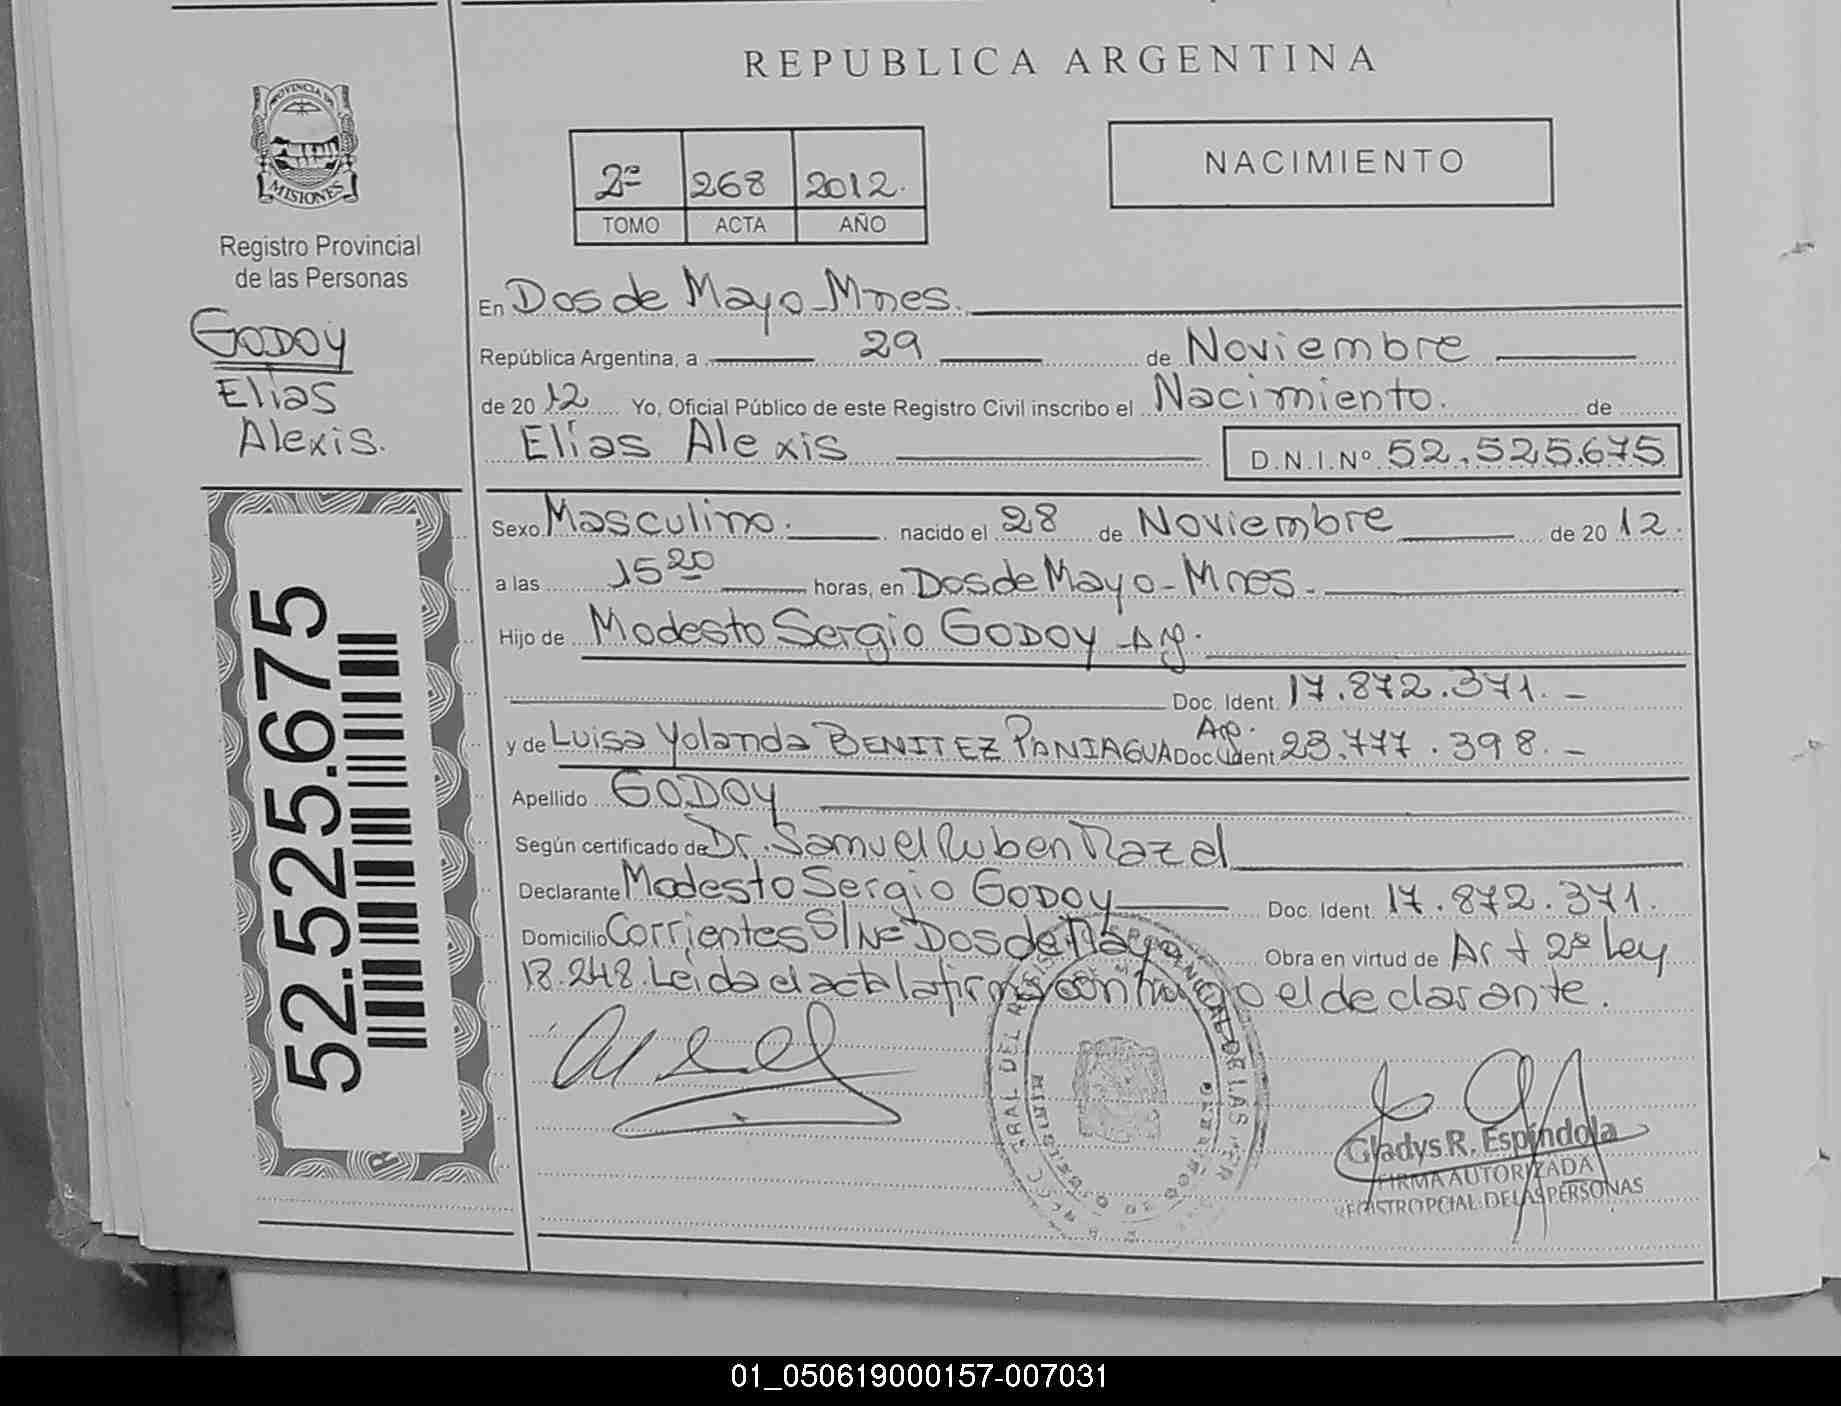 REPUBLICA ARGENTINA
PROVINCIA DE
MISIONES
Registro Provincial
de las Personas
GODOY
Elias
Alexis.
52.525.675
2º 268 2012.
TOMO ACTA AÑO
NACIMIENTO
En Dos de Mayo - Mnes.
República Argentina, a 29 de Noviembre
de 20 12 Yo, Oficial Público de este Registro Civil inscribo el Nacimiento. de
Elias Alexis D.N.I.Nº 52.525.675
Sexo Masculino. nacido el 28 de Noviembre de 20 12.
a las 15 20 horas, en Dos de Mayo - Mnes.
Hijo de Modesto Sergio GODOY Arg.
Doc. Ident. 17.872.371. -
y de Luisa Yolanda BENITEZ PANIAGUA Arg. Doc. Ident 23.777.398. -
Apellido GODOY
Según certificado de Dr. Samuel Ruben Nazal
Declarante Modesto Sergio GODOY Doc. Ident. 17.872.371.
Domicilio Corrientes S/Nº Dos de Mayo Obra en virtud de Art 2º Ley
18.248. Leida el acta la firma conmigo el declarante.
Gladys R. Espíndola
FIRMA AUTORIZADA
REGISTRO PCIAL. DE LAS PERSONAS
01_050619000157-007031